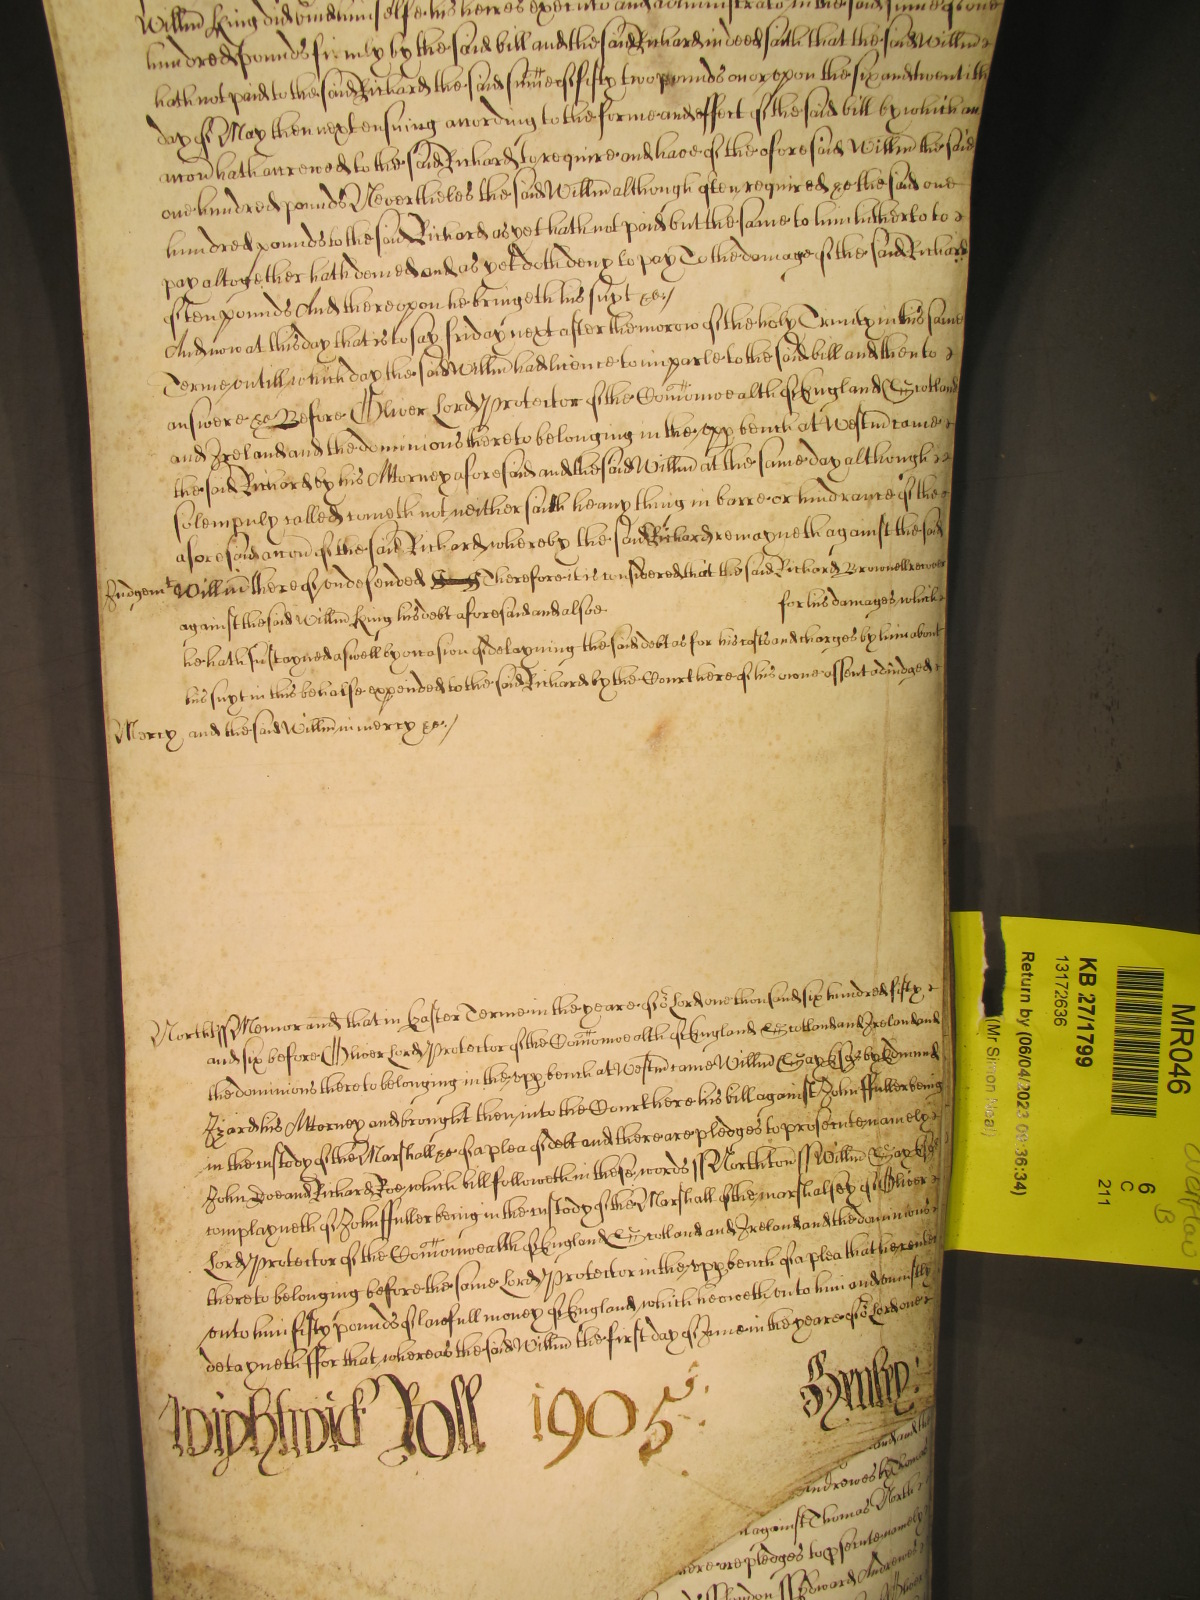 Willm King did bind himselfe his heires executors and administrators in the said summe of one
hundred pounds firmly by the said bill and the said Richard indeed saith that the said Willm
hath not paid to the said Richard the said summe of fifty two pounds on or upon the six and twentith
day of May then next ensuing according to the forme and effect of the said bill by which an
accon hath accrewed to the said Richard to require and have of the aforesaid Willm the said
one hundred pounds Nevertheles the said Willm although often required &c the said one
hundred pounds to the said Richard as yet hath not paid but the same to him hitherto to
pay altogether hath denied and as yet doth deny to pay To the damage of the said Richard
of ten pounds And thereupon he bringeth his suyt &c /
And now at this day that is to say friday next after the morow of the holy Trinity in this same
Terme untill which day the said Willm had licence to imparle to the said bill and then to
answere &c Before Oliver Lord Protector of the Comonwealth of England Scotland
and Ireland and the dominions thereto belonging in the upp bench at Westm came
the said Richard by his Attorney aforesaid and the said Willm at the same day although
solempnly called cometh not neither saith he any thing in barre or hindrance of the
aforesaid accon of the said Richard whereby the said Richard remayneth against the said
Judgemt Willm thereof undefended Therefore it is considered that the said Richard Brownell recover
against the said Willm King his debt aforesaid and alsoe for his damages which
he hath sustayned aswell by occasion of detayning the said debt as for his costs and charges by him about
his suyt in this behalfe expended to the said Richard by the Court here of his owne assent adiudged
Mercy and the said Willm in mercy &c /
Northt ss Memorand that in Easter Terme in the yeare of or Lord one thousand six hundred fifty
and six before Oliver Lord Protector of the Comonwealth of England Scotland and Ireland and
the dominions thereto belonging in the upp bench at Westm came Willm by Edmund
Izard his Attorney and brought then into the Court here his bill against John ffuller being
in the custody of the Marshall &c of a plea of debt and there are pledges to prosecute namely
John Doe and Richard Roe which bill followeth in these words ss Northton ss Willm
complayneth of John ffuller being in the custody of the Marshall of the marshalsey of Oliver
Lord Protector of the Comonwealth of England Scotland and Ireland and the dominions
thereto belonging before the same Lord Protector in the upp bench of a plea that he render
unto him fifty pounds of lawfull money of England which he oweth unto him and uniustly
detayneth ffor that whereas the said Willm the first day of June in the yeare of or Lord one
Wightwick Roll 1905
and that
Andrewes by Thomas
against Thomas North
there are pledges to psecute namely
London ss Edward Andrewes
MR046
6
C
211
KB 27/1799
13172636
Return by (06/04/2023 09:36:34)
(Mr Simon Neal)